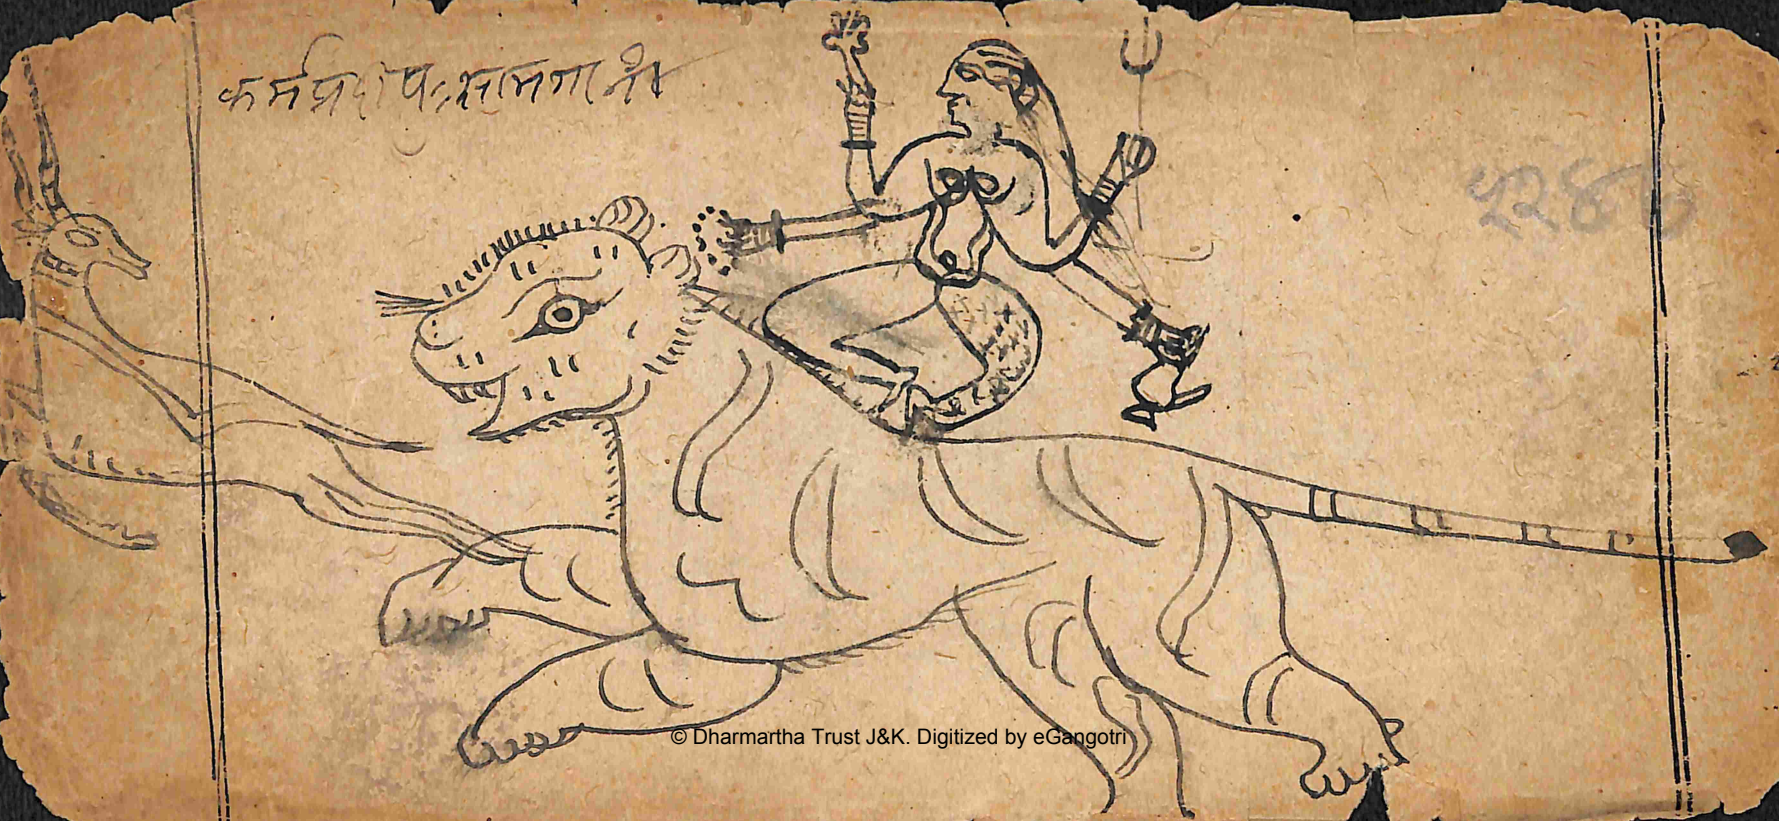 कर्मप्रदीपः सामगानां
५२४७
© Dharmartha Trust J&K. Digitized by eGangotri